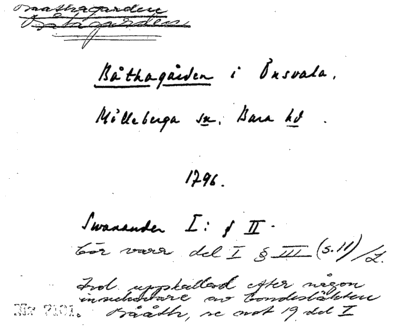 Baathagården
Båtsgården
Båthagården i Önsvala,
Mölleberga sn, Bara hd.
1796.
Swanander I: § II.
bör vara del I § III (s. 11) / L.
Trol. uppkallad efter någon
innehavare av
Bååth, se not 19 del I